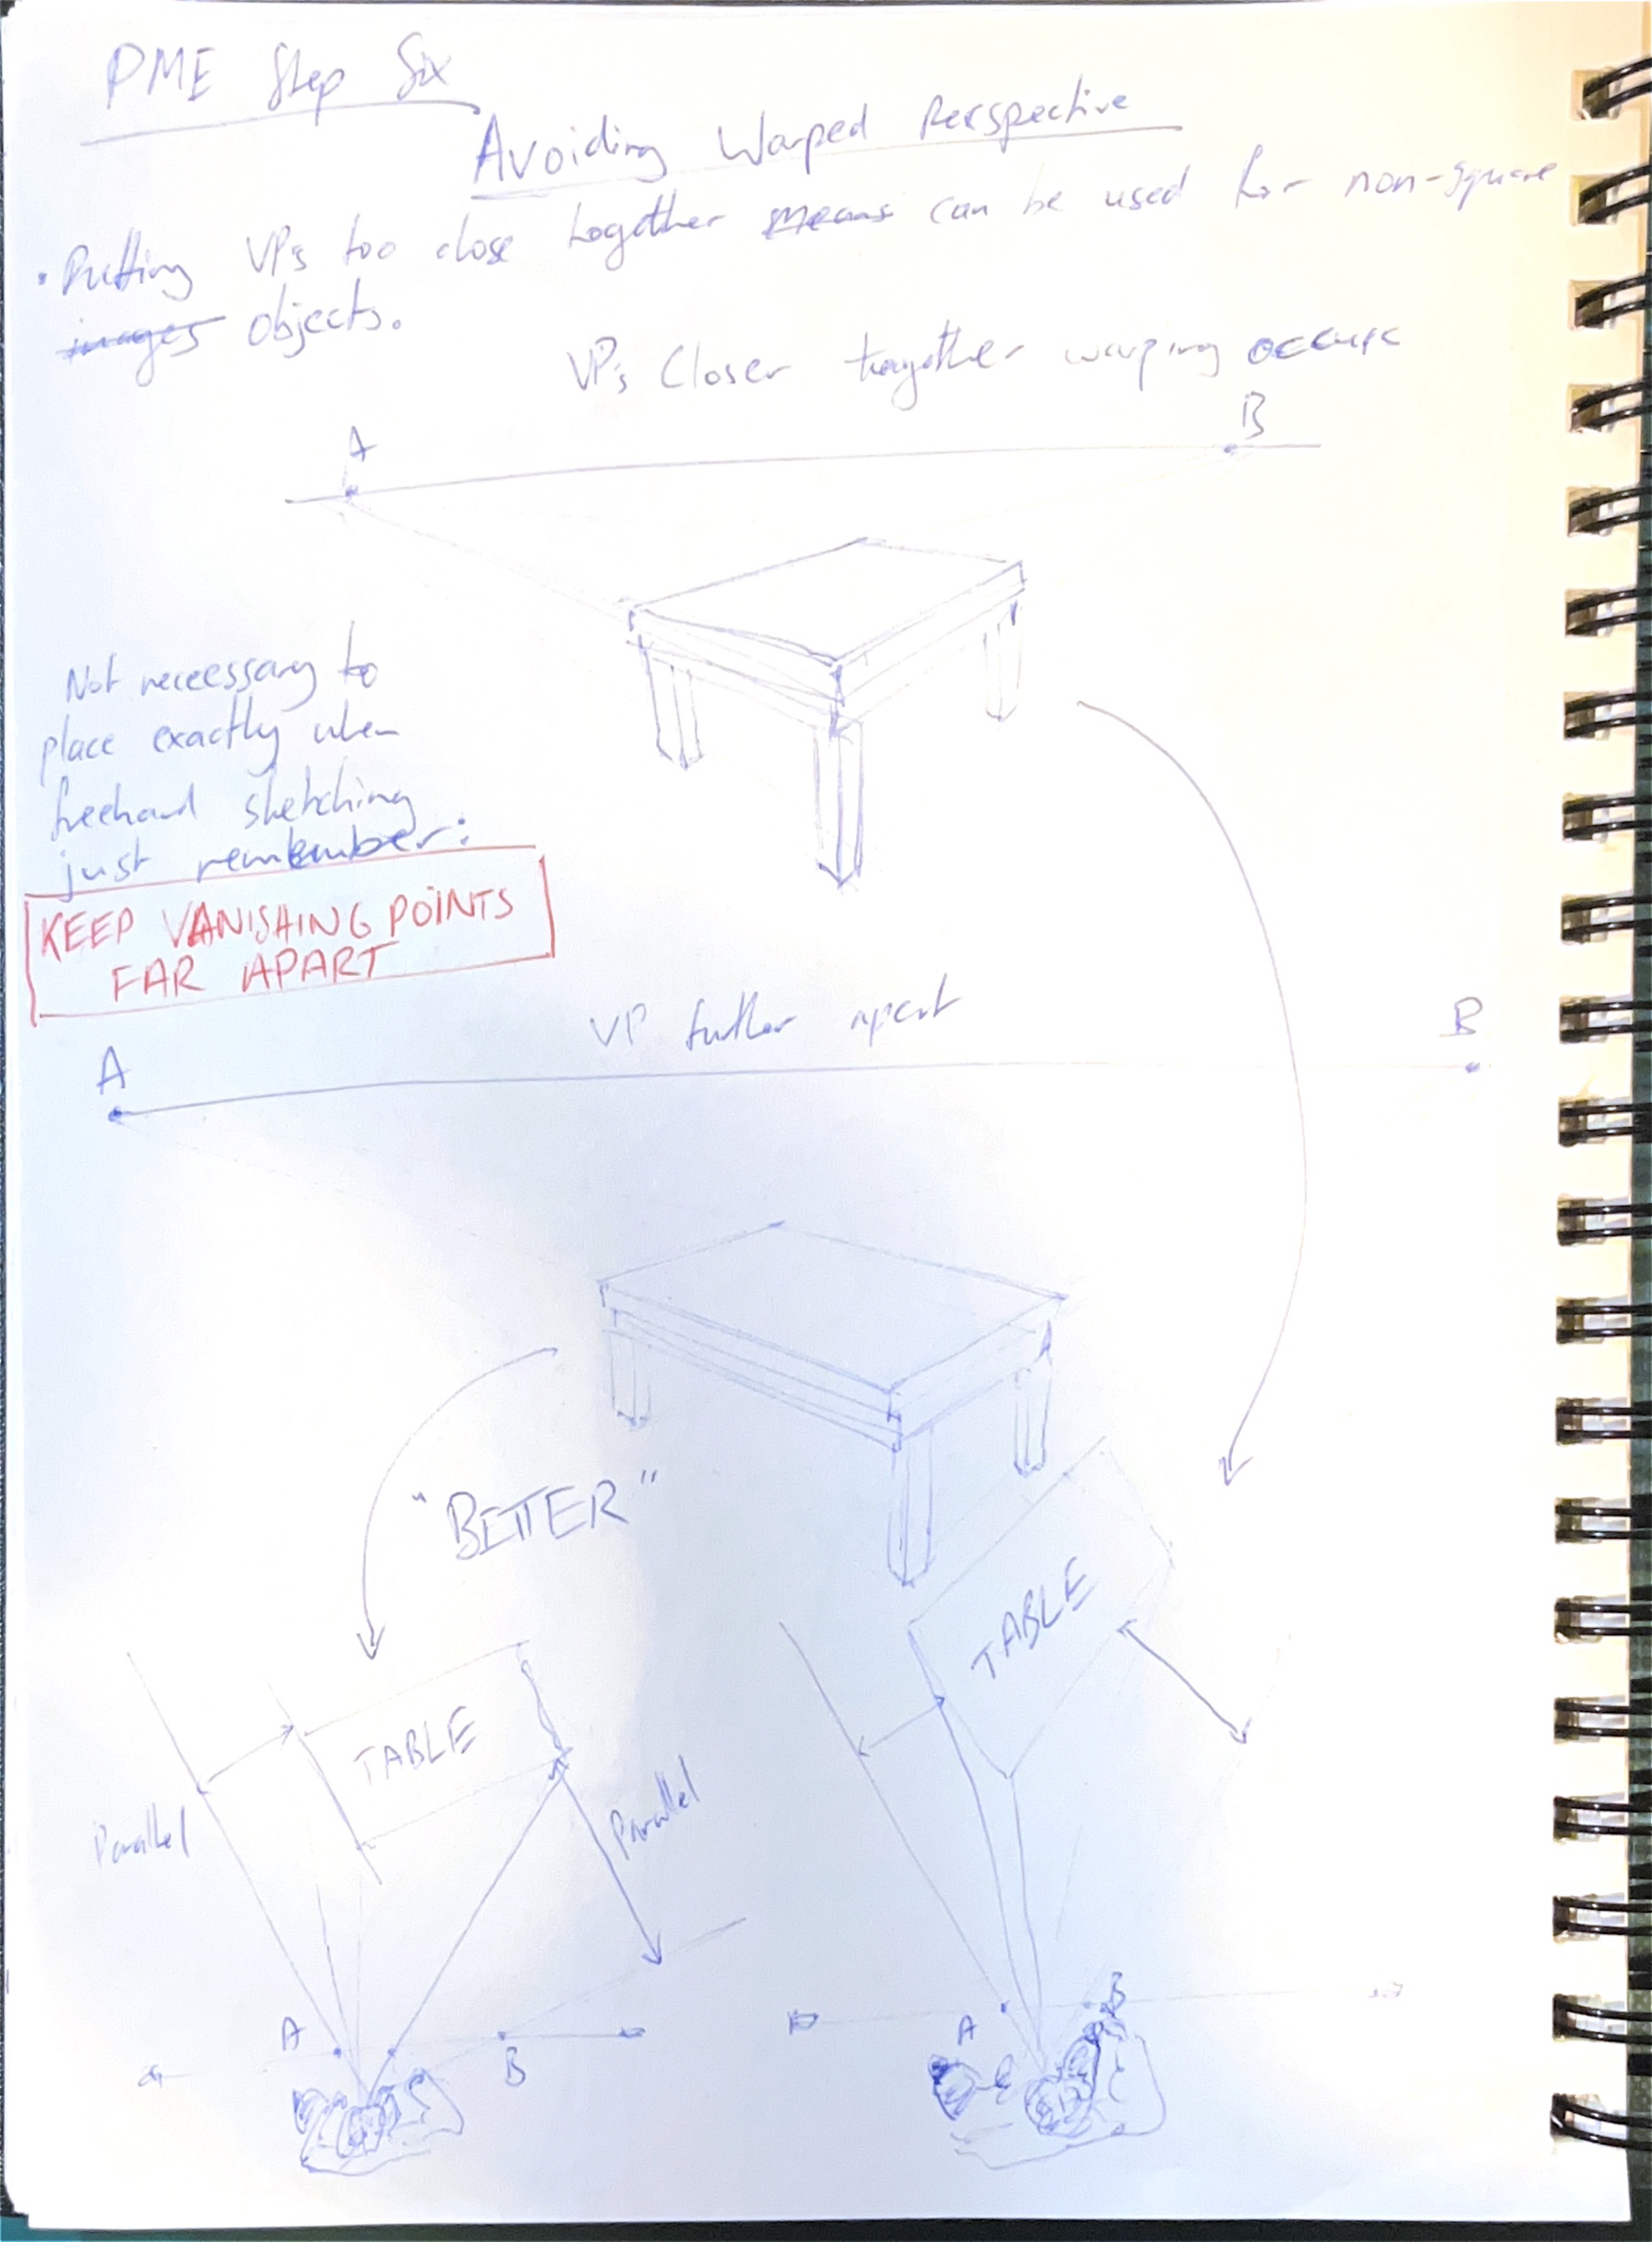 PME Step Six
Avoiding Warped Perspective
• Putting VPs too close together means can be used for non-square
images objects.
VPs Closer together warping occurs
A
B
Not neceessary to
place exactly when
freehand sketching
just remember:
KEEP VANISHING POINTS
FAR APART
VP further apart
A
B
"BETTER"
TABLE
TABLE
Parallel
Parallel
A
B
A
B